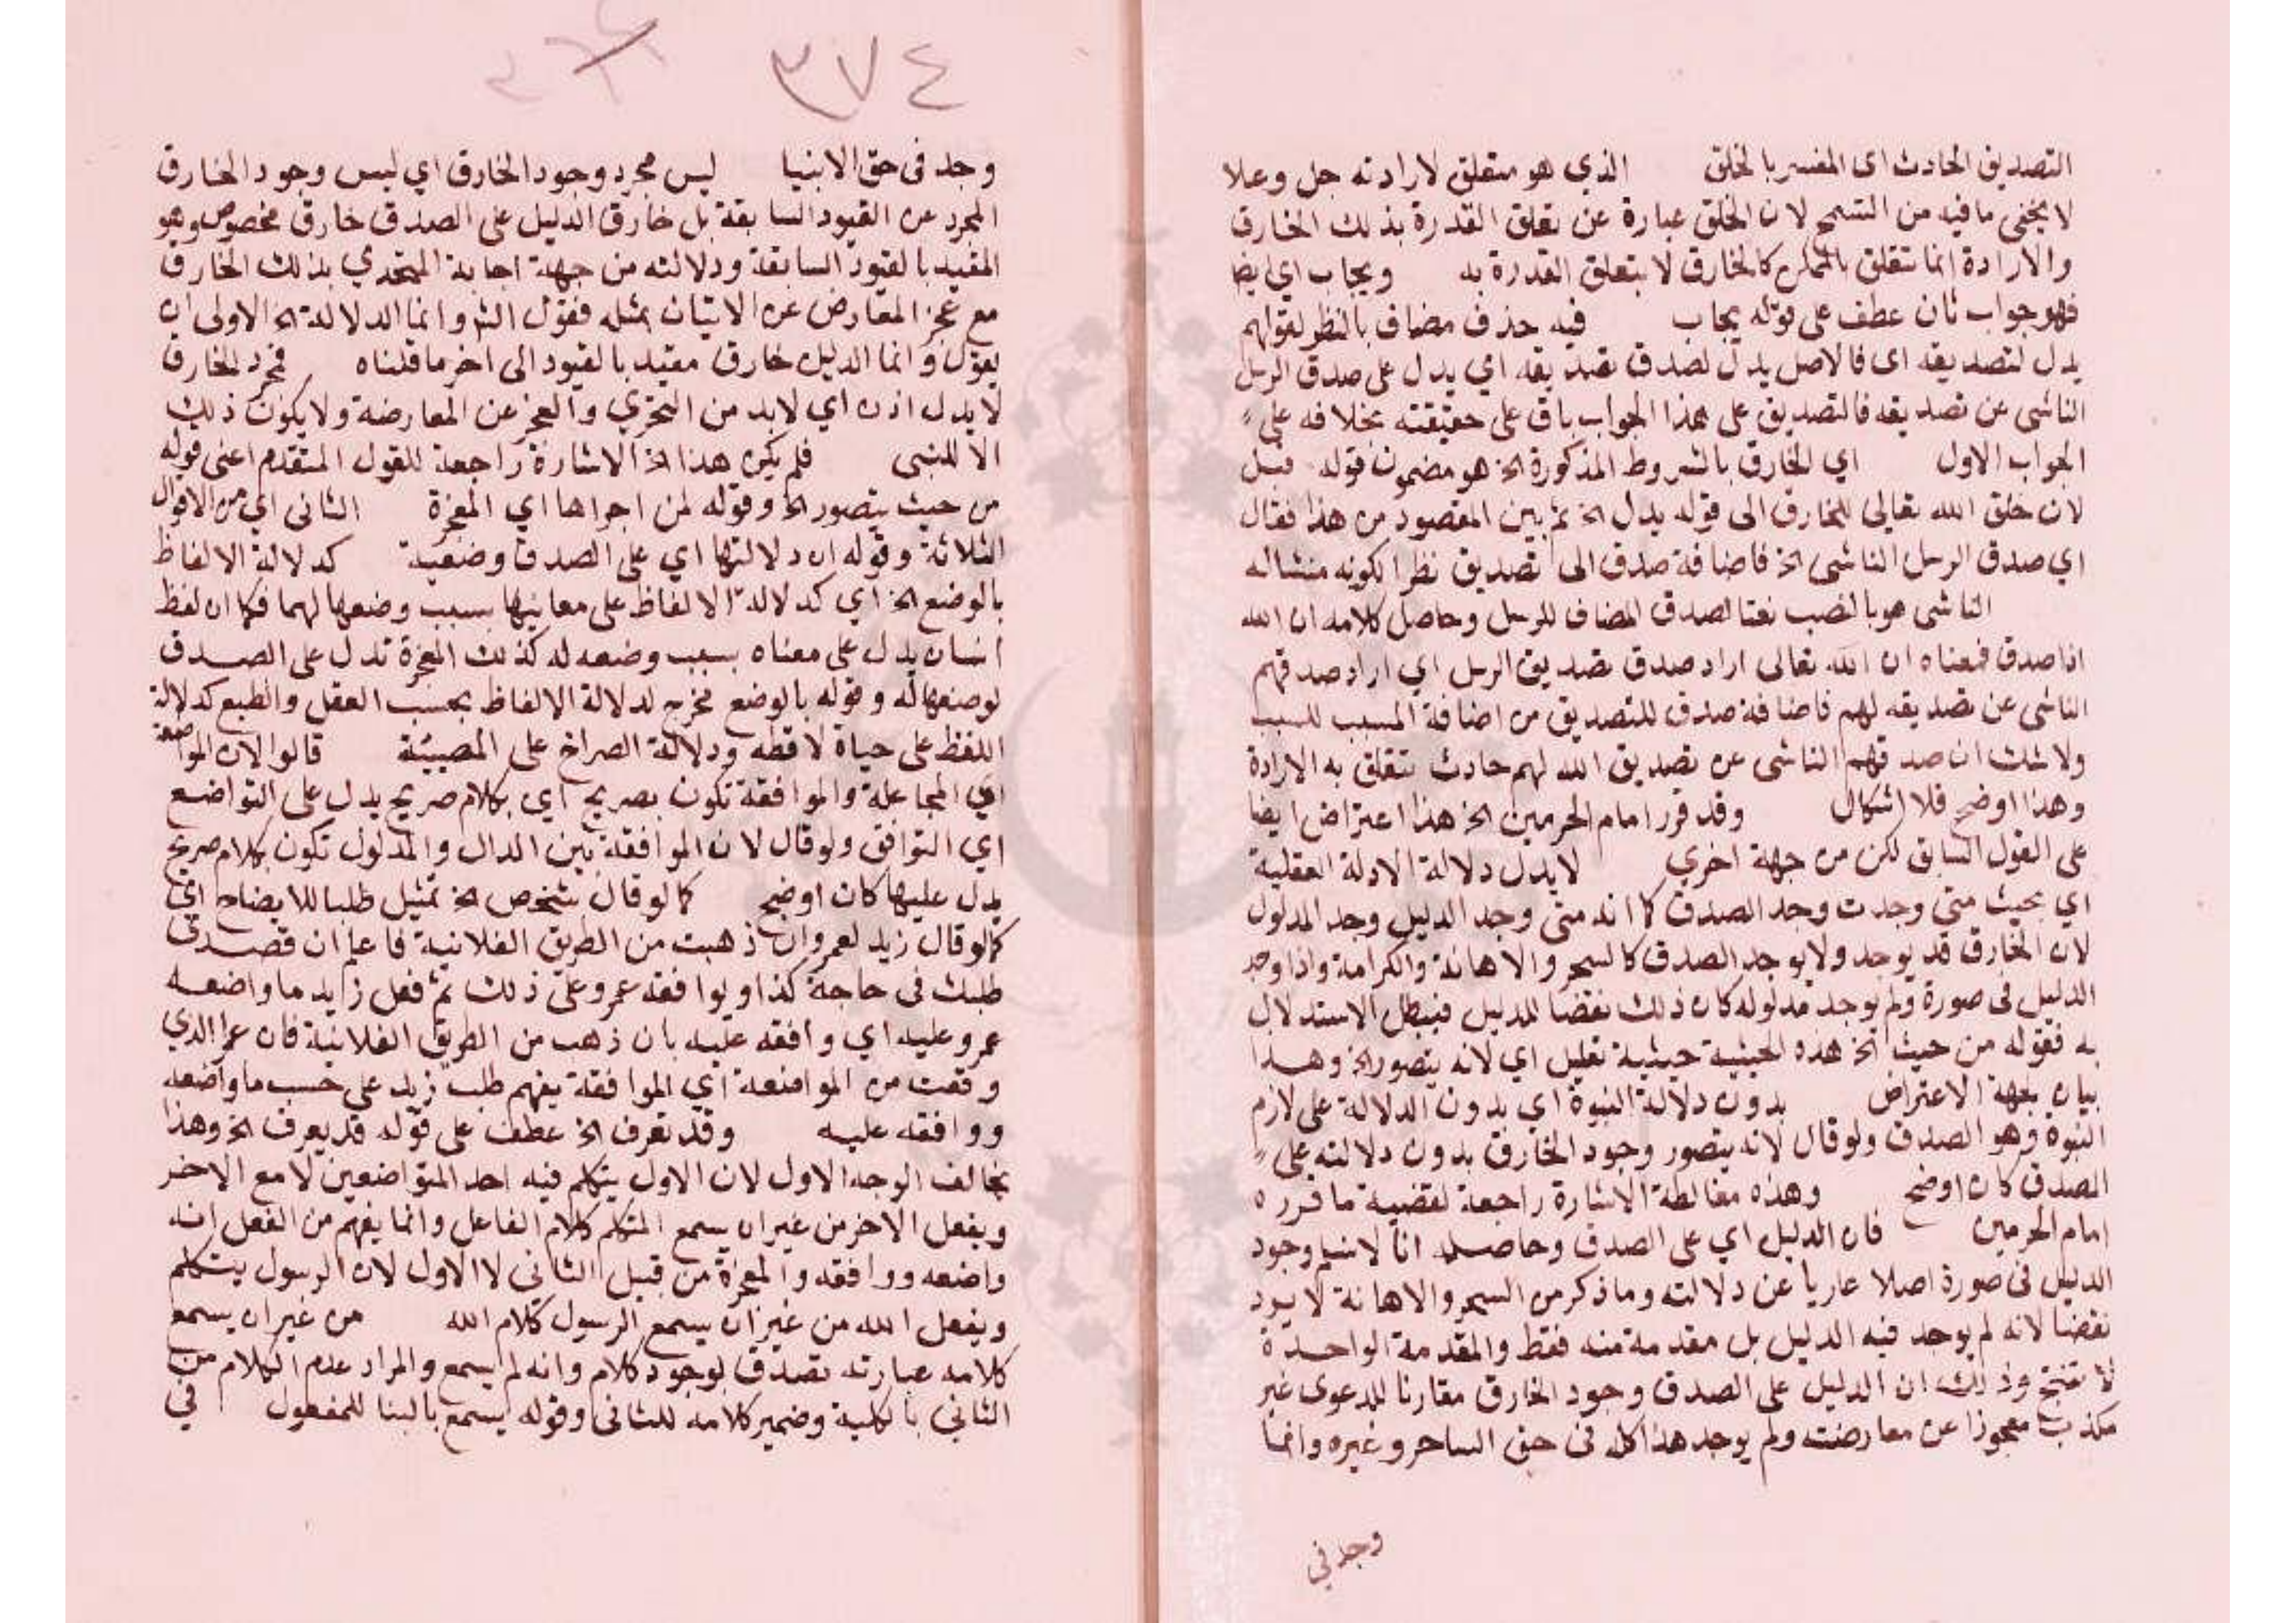 التصديق الحادث اى المفسر بالخلق الذي هو متعلق لارادته جل وعلا
لا يخفى ما فيه من التسمح لان الخلق عبارة عن تعلق القدرة بذلك الخارق
والارادة انما تتعلق بالممكن كالخارق لا بتعلق القدرة به ويجاب اي ايضا
فهو جواب ثان عطف على قوله يجاب فيه حذف مضاف بالنظر لقولهم
يدل لتصديقه اى فالاصل يدل لصدق تصديقه اي يدل على صدق الرسل
الناشى عن تصديقه فالتصديق على هذا الجواب باق على حقيقته بخلافه على
الجواب الاول اي الخارق بالشروط المذكورة الخ هو مضمون قوله قبل
لان خلق الله تعالى للخارق الى قوله يدل الخ ثم بين المقصود من هذا فقال
اي صدق الرسل الناشى الخ فاضافة صدق الى تصديق نظرا لكونه منشأ له
الناشى هو بالنصب نعتا لصدق المضاف للرسل وحاصل كلامه ان الله
اذا صدق فمعناه ان الله تعالى اراد صدق تصديق الرسل اي اراد صدقهم
الناشى عن تصديقه لهم فاضافة صدق للتصديق من اضافة المسبب للسبب
ولا شك ان صدقهم الناشى عن تصديق الله لهم حادث تتعلق به الارادة
وهذا اوضح فلا اشكال وقد قرر امام الحرمين الخ هذا اعتراض ايضا
على القول السابق لكن من جهة اخري لا يدل دلالة الادلة العقلية
اي بحيث متى وجدت وجد الصدق كما انه متى وجد الدليل وجد المدلول
لان الخارق قد يوجد ولا يوجد الصدق كالسحر والاهانة والكرامة واذا وجد
الدليل فى صورة ولم يوجد مدلوله كان ذلك نقضا للدليل فيبطل الاستدلال
به فقوله من حيث الخ هذه الحيثية حيثية تعليل اي لانه يتصور الخ وهذا
بيان بجهة الاعتراض بدون دلالة النبوة اي بدون الدلالة على لازم
النبوة وهو الصدق ولو قال لانه يتصور وجود الخارق بدون دلالته على
الصدق كان اوضح وهذه مغالطة الاشارة راجعة لقضية ما قرره
امام الحرمين فان الدليل اي على الصدق وحاصله انا لا نسلم وجود
الدليل فى صورة اصلا عاريا عن دلالته وما ذكر من السحر والاهانة لا يرد
نقضا لانه لم يوجد فيه الدليل بل مقدمة منه فقط والمقدمة الواحدة
لا تنتج وذلك ان الدليل على الصدق وجود الخارق مقارنا للدعوى غير
مكذب معجوزا عن معارضته ولم يوجد هذا كله فى حق الساحر وغيره وانما
وجد فى
٣٧٤
وجد فى حق الانبيا ليس مجرد وجود الخارق اي ليس وجود الخارق
المجرد عن القيود السابقة بل خارق الدليل على الصدق خارق مخصوص وهو
المقيد بالقيود السابقة ودلالته من جهة اجابة المتحدي بذلك الخارق
مع عجز المعارض عن الاتيان بمثله فقول الش وانما الدلالة الخ الاولى ان
يقول وانما الدليل خارق مقيد بالقيود الى اخر ما قلناه فمجرد الخارق
لا يدل اذن اي لابد من التحري والعجز عن المعارضة ولا يكون ذلك
الا للنبى فلم يكن هذا الخ الاشارة راجعة للقول المتقدم اعنى قوله
من حيث يتصور الخ وقوله لمن اجراها اي المعجزة الثانى اي من الاقوال
الثلاثة وقوله ان دلالتها اي على الصدق وضعية كدلالة الالفاظ
بالوضع الخ اي كدلالة الالفاظ على معانيها بسبب وضعها لهما فكما ان لفظ
انسان يدل على معناه بسبب وضعه له كذلك المعجزة تدل على الصدق
لوضعها له وقوله بالوضع مخرج لدلالة الالفاظ بحسب العقل والطبع كدلالة
اللفظ على حياة لافظه ودلالة الصراخ على المصيبة قالوا لان المواضعة
اي المجاعلة والموافقة تكون بصريح اي بكلام صريح يدل على التواضع
اي التوافق ولو قال لان الموافقة بين الدال والمدلول تكون بكلام صريح
يدل عليها كان اوضح كما لو قال شخص الخ تمثيل طلبا للايضاح اي
كما لو قال زيد لعمرو ان ذهبت من الطريق الفلانية فاعلم ان قصدى
طلبك فى حاجة كذا ويوافقه عمرو على ذلك ثم فعل زايد ما واضعه
عمرو عليه اي وافقه عليه بان ذهب من الطريق الفلانية فان عمرا الذي
وقعت من المواضعة اي الموافقة يفهم طلب زيد على حسب ما واضعه
ووافقه عليه وقد تعرف الخ عطف على قوله قد يعرف الخ وهذا
يخالف الوجه الاول لان الاول يتكلم فيه احد المتواضعين لا مع الاخر
ويفعل الاخر من غير ان يسمع المتكلم كلام الفاعل وانما يفهم من الفعل انه
واضعه ووافقه والمعجزة من قبيل الثاني لا الاول لان الرسول يتكلم
ويفعل الله من غير ان يسمع الرسول كلام الله من غير ان يسمع
كلامه عبارته تصدق بوجود كلام وانه لم يسمع والمراد عدم الكلام من
الثاني بالكلية وضمير كلامه للثانى وقوله يسمع بالبنا للمفعول في